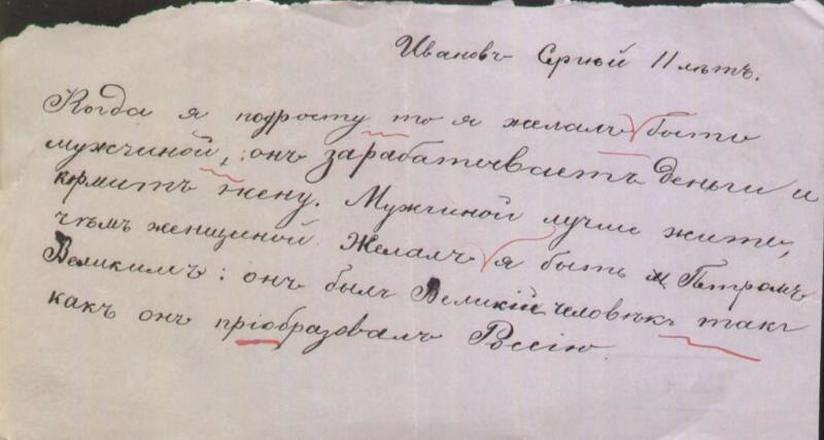 Ивановъ Сергѣй 11 лѣтъ.
Когда я подросту то я желалъ быть
мужчиной, : онъ зарабатываетъ деньги и
кормитъ жену. Мужчиной лучше жить,
чѣмъ женщиной. Желалъ я быть Петромъ
Великимъ: онъ былъ Великій человѣкъ такъ
какъ онъ пріобразовалъ Россію